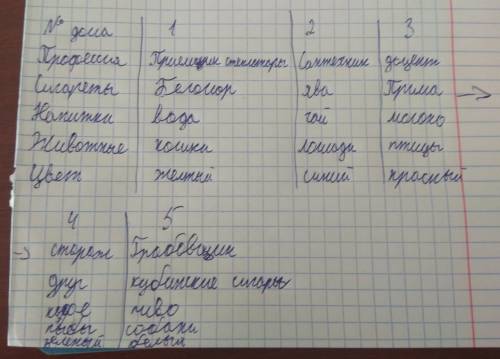 № дома 1 2 3
Профессия Приемщик стеклотары Сантехник доцент
Сигареты Беломор Ява Прима →
Напитки вода чай молоко
Животные кошки лошади птицы
Цвет желтый синий красный
4 5
→ сторож Гробовщик
друг кубинские сигары
кофе пиво
рыбы собаки
зеленый белый